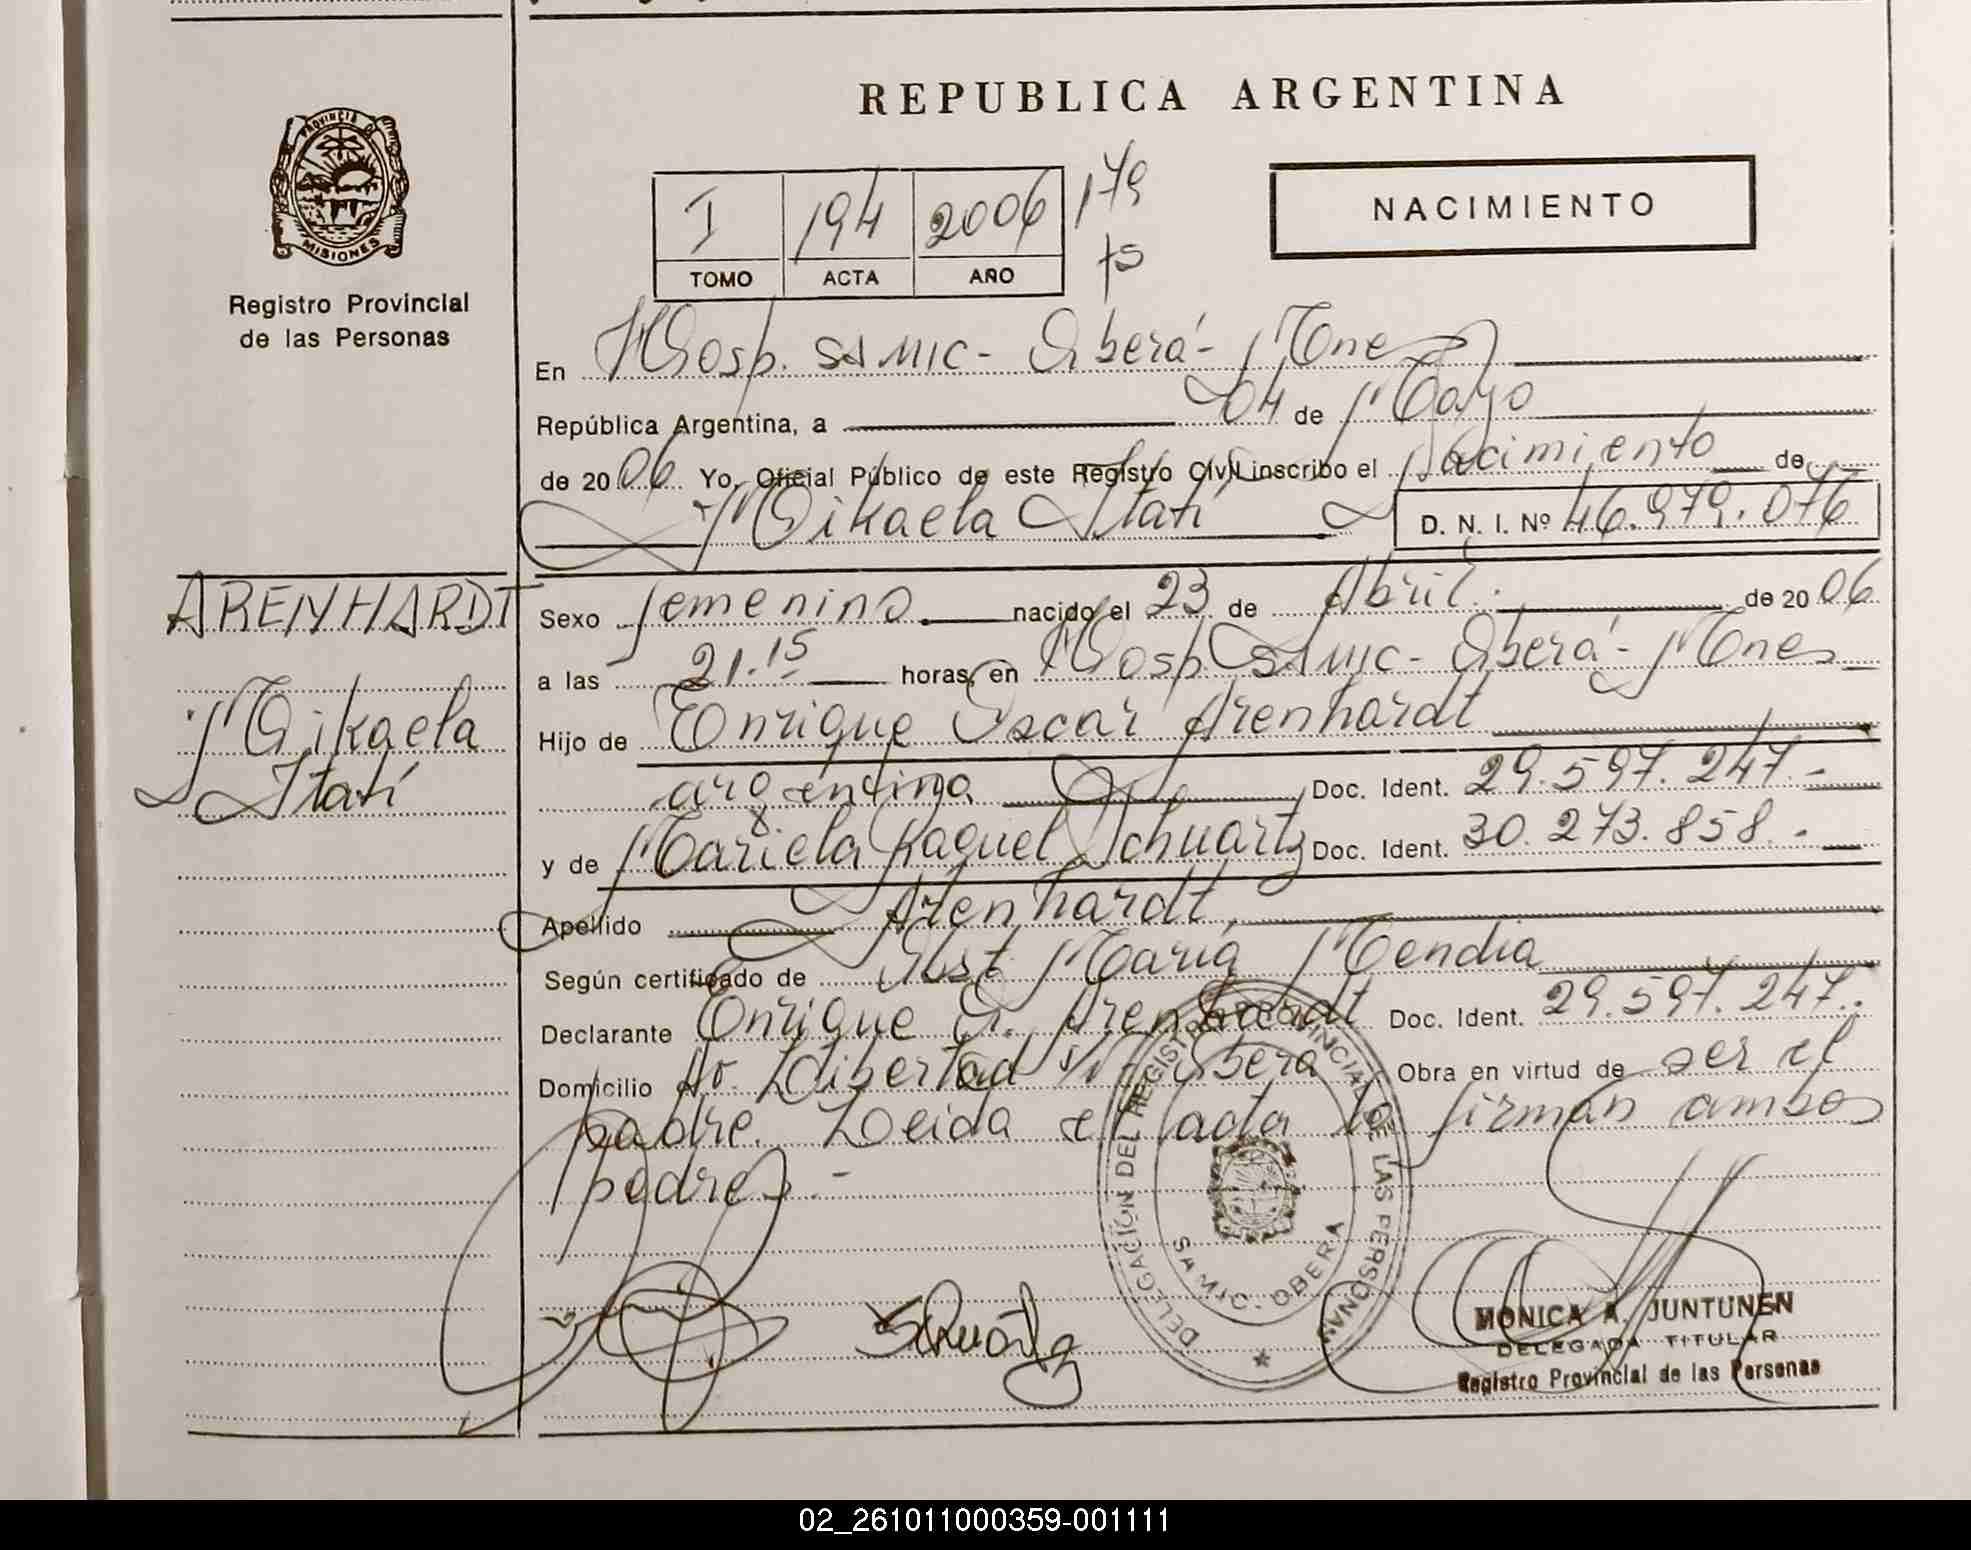 REPUBLICA ARGENTINA
PROVINCIA D MISIONES
Registro Provincial
de las Personas
I 194 2006 179
TOMO ACTA AÑO fs
NACIMIENTO
En Hosp. SAMIC - Oberá - Mnes
República Argentina, a 04 de Mayo
de 2006 Yo, Oficial Público de este Registro Civil inscribo el Nacimiento de
Mikaela Itatí D. N. I. Nº 46.979.076
ARENHARDT
Mikaela
Itatí
Sexo femenino nacido el 23 de Abril de 2006
a las 21.15 horas, en Hosp SAMIC - Oberá - Mnes
Hijo de Enrique Oscar Arenhardt
argentina Doc. Ident. 29.597.247.-
y de Mariela Raquel Schuartz Doc. Ident. 30.273.858.-
Apellido Arenhardt
Según certificado de Obst María Mendia
Declarante Enrique O. Arenhardt Doc. Ident. 29.597.247.-
Domicilio Av. Libertad S/N Oberá Obra en virtud de ser el
padre. Leida el acta la firman ambos
padres.-
DELEGACIÓN DEL REGISTRO PROVINCIAL DE LAS PERSONAS
SAMIC - OBERA
MONICA A. JUNTUNEN
DELEGADA TITULAR
Registro Provincial de las Personas
02_261011000359-001111